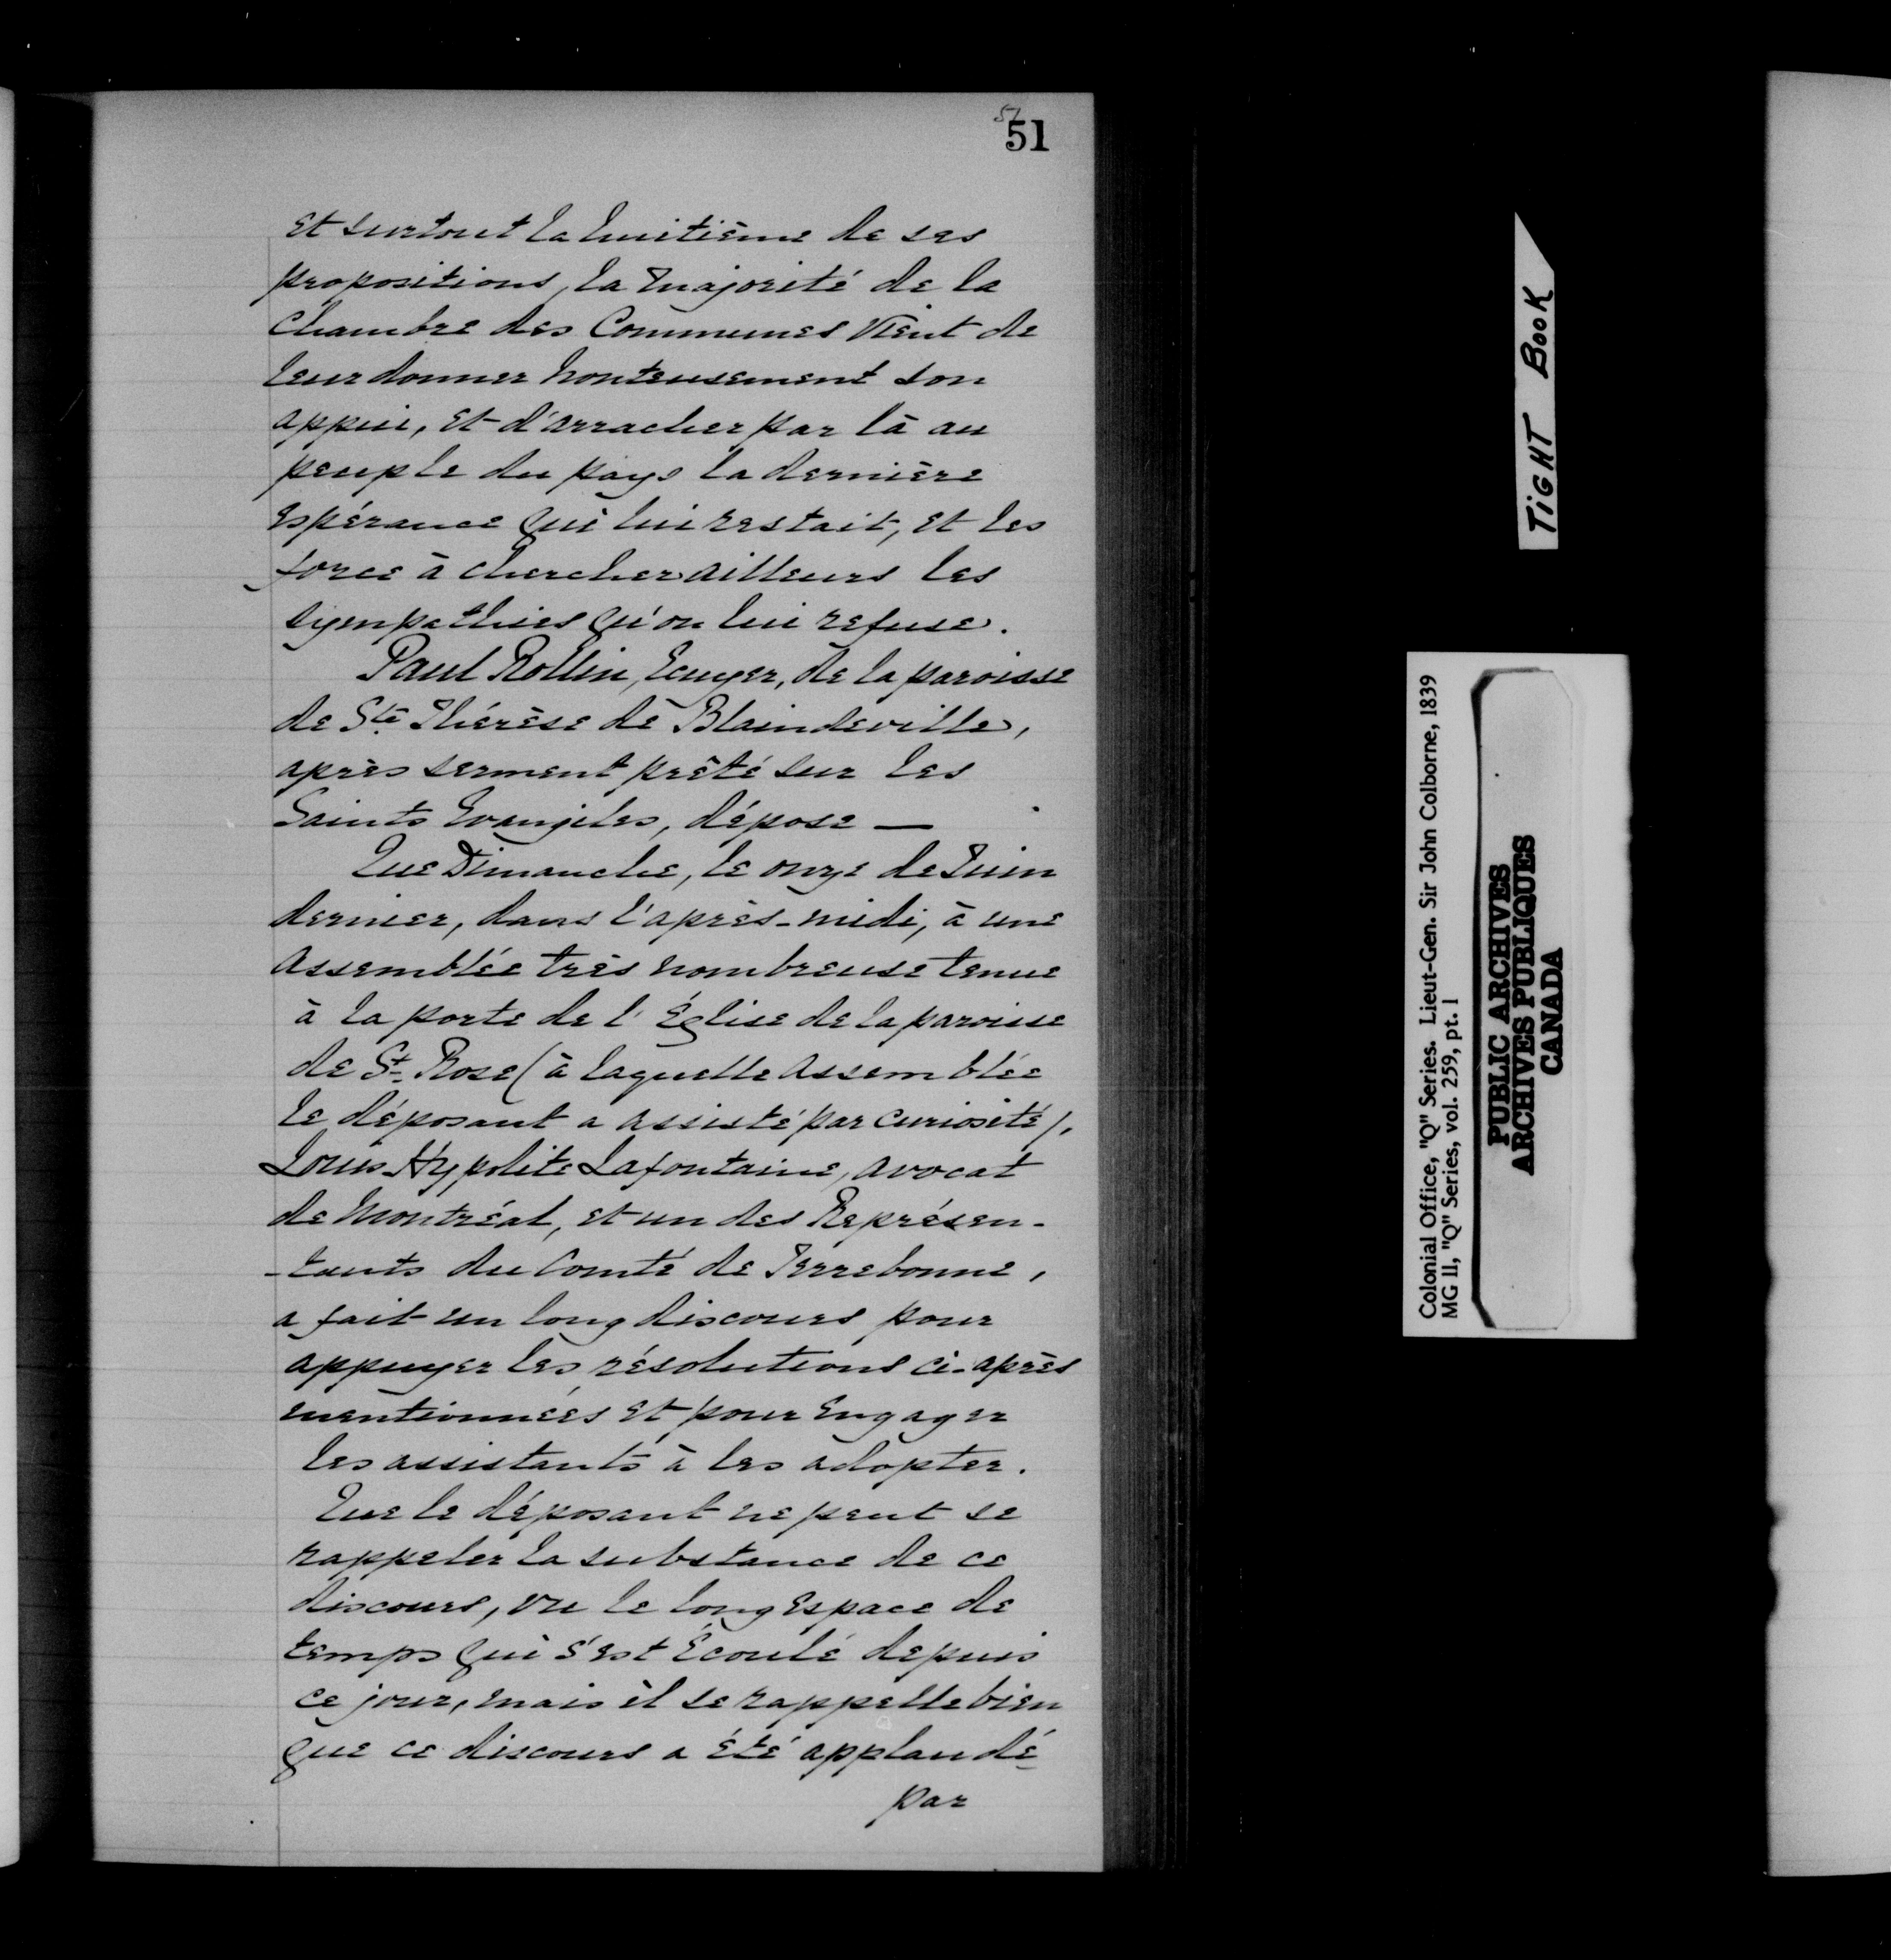 51
51
et surtout la huitième de ses
propositions, la Majorité de la
Chambre des Communes vient de
leur donner honteusement son
appui, et d'arracher par là au
peuple du pays la dernière
espérance qui lui restait, et les
force à chercher ailleurs les
sympathies qu'on lui refuse.
Paul Rollin, Ecuyer, de la paroisse
de Ste Thérèse de Blaindeville,
après serment prêté sur les
Saints Evangiles, dépose —
Que Dimanche, le onze de Juin
dernier, dans l'après-midi, à une
Assemblée très nombreuse tenue
à la porte de l'Église de la paroisse
de St. Rose (à laquelle Assemblée
le déposant a assisté par curiosité),
Louis Hypolite Lafontaine, avocat
de Montréal, et un des Représen-
-tants du Comté de Terrebonne,
a fait un long discours pour
appuyer les résolutions ci-après
mentionnées et pour engager
les assistants à les adopter.
Que le déposant ne peut se
rappeler la substance de ce
discours, vu le long espace de
temps qui s'est écoulé depuis
ce jour, mais il se rappelle bien
que ce discours a été applaudi
par
TIGHT BOOK
Colonial Office, "Q" Series. Lieut-Gen. Sir John Colborne, 1839
MG 11, "Q" Series, vol. 259, pt. 1
PUBLIC ARCHIVES
ARCHIVES PUBLIQUES
CANADA